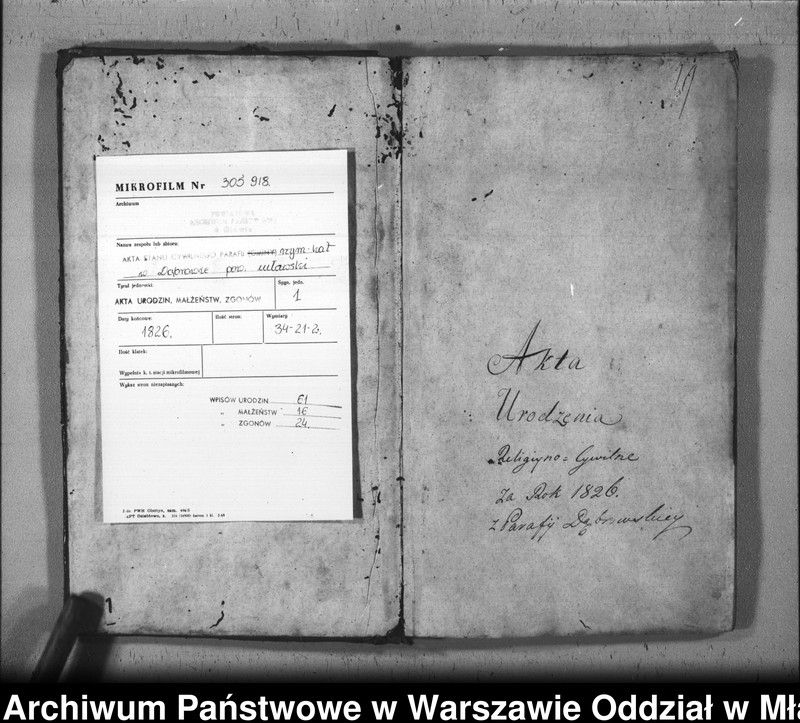 MIKROFILM Nr 305 918.
Archiwum
Nazwa zespołu lub zbioru:
AKTA STANU CYWILNEGO PARAFII (GMINY) rzym-kat
w Dąbrowie pow. mławski
Tytuł jednostki:
Sygn. jedn.
AKTA URODZIN, MAŁŻEŃSTW, ZGONÓW
1
Daty końcowe:
Ilość stron:
Wymiary:
1826.
34-21-2.
Ilość klatek:
Wypełnia k. t. stacji mikrofilmowej
Wykaz stron niezapisanych:
WPISÓW URODZIN 61
„ MAŁŻEŃSTW 16
„ ZGONÓW 24.
Akta
Urodzenia
Religiyno = Cywilne
za Rok 1826.
z Parafij Dąbrowskiey
1
Archiwum Państwowe w Warszawie Oddział w Mła